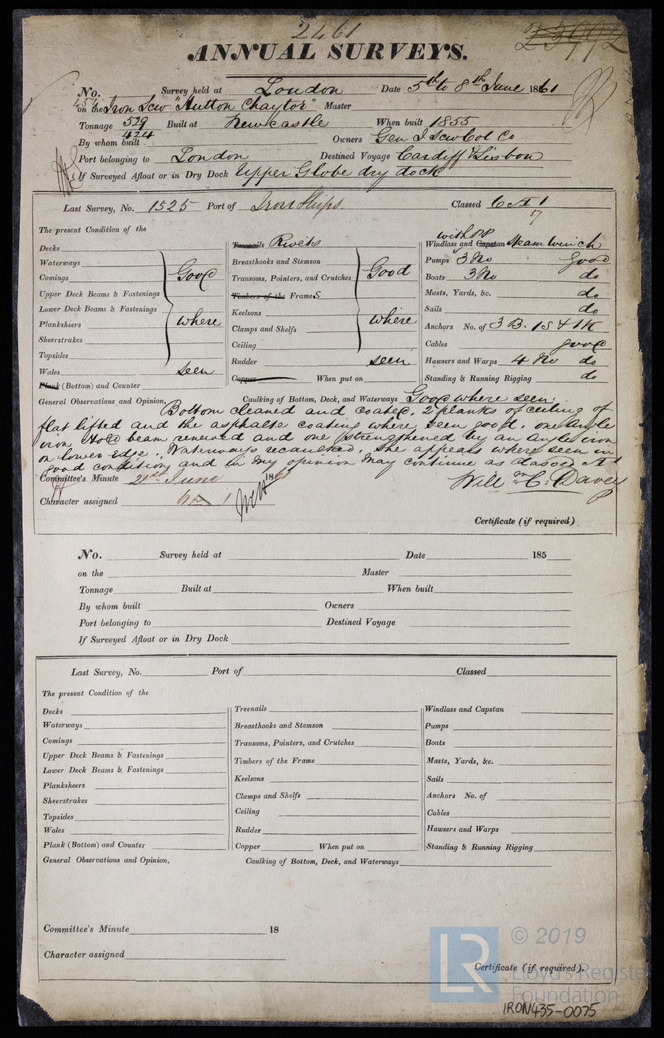 2461
ANNUAL SURVEYS.
No. Survey held at London Date 5th to 8th June 1861
on the Iron Scw "Hutton Chaytor" Master
Tonnage 529 Built at Newcastle When built 1855
424
By whom built Owners Gen I Scw Col Co
Port belonging to London Destined Voyage Cardiff & Lisbon
If Surveyed Afloat or in Dry Dock Upper Globe dry dock
Last Survey, No. 1525 Port of Iron Ships. Classed A 1
The present Condition of the
Decks
Waterways
Comings
Upper Deck Beams & Fastenings
Lower Deck Beams & Fastenings
Planksheers
Sheerstrakes
Topsides
Wales
Plank (Bottom) and Counter
Good
where
seen
Treenails Rivets
Breasthooks and Stemson
Transoms, Pointers, and Crutches
Timbers of the Frames
Keelsons
Clamps and Shelfs
Ceiling
Rudder
Copper When put on
Good
where
seen
Windlass and Capstan Steam winch
Pumps 3 No good
Boats 3 No do
Masts, Yards, &c. do
Sails do
Anchors No. of 3 B. 1 S & 1 K do
Cables good
Hawsers and Warps 4 No do
Standing & Running Rigging do
General Observations and Opinion, Caulking of Bottom, Deck, and Waterways Good where seen
Bottom cleaned and coated. 2 planks of ceiling of
flat lifted and the asphalte coating where seen good. one angle
iron Hold beam renewed and one strengthened by an angle iron
on lower edge. Waterways recaulked. She appears where seen in
good condition and in my opinion may continue as classed A1
Committee's Minute 21st June 18
Will m C. Davey
Character assigned A 1
Certificate (if required)
No. Survey held at Date 185
on the Master
Tonnage Built at When built
By whom built Owners
Port belonging to Destined Voyage
If Surveyed Afloat or in Dry Dock
Last Survey, No. Port of Classed
The present Condition of the
Decks
Waterways
Comings
Upper Deck Beams & Fastenings
Lower Deck Beams & Fastenings
Planksheers
Sheerstrakes
Topsides
Wales
Plank (Bottom) and Counter
Treenails
Breasthooks and Stemson
Transoms, Pointers, and Crutches
Timbers of the Frame
Keelsons
Clamps and Shelfs
Ceiling
Rudder
Copper When put on
Windlass and Capstan
Pumps
Boats
Masts, Yards, &c.
Sails
Anchors No. of
Cables
Hawsers and Warps
Standing & Running Rigging
General Observations and Opinion, Caulking of Bottom, Deck, and Waterways
Committee's Minute 18
Character assigned
Certificate (if required).
LR
© 2019
Lloyd's Register
Foundation
IRON435-0075